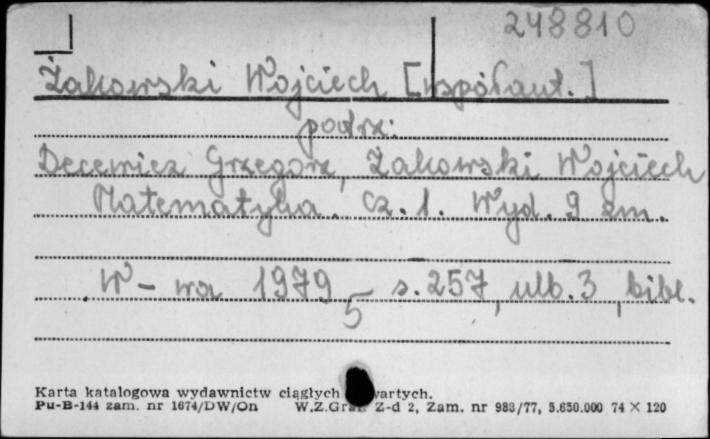 248810
Żakowski Wojciech [współaut.]
podrz:
Decewicz Grzegorz, Żakowski Wojciech
Matematyka. Cz. 1. Wyd. 9 zm.
W-wa 1979 s. 257, ulb. 3, bibl.
5
Karta katalogowa wydawnictw ciągłych wartych.
Pu-B-144 zam. nr 1674/DW/On W.Z.Graf. Z-d 2, Zam. nr 983/77, 5.650.000 74 × 120